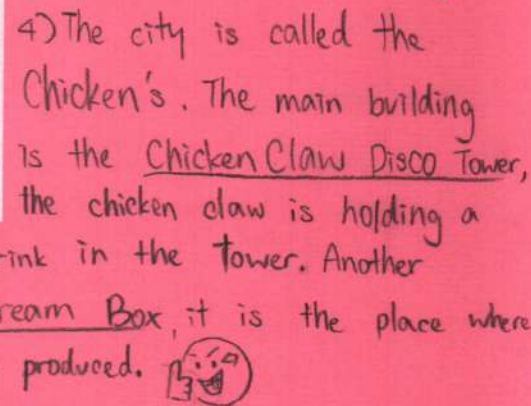 4) The city is called the
Chicken's. The main building
is the Chicken Claw Disco Tower,
the chicken claw is holding a
in the tower. Another
Box, it is the place where
produced.